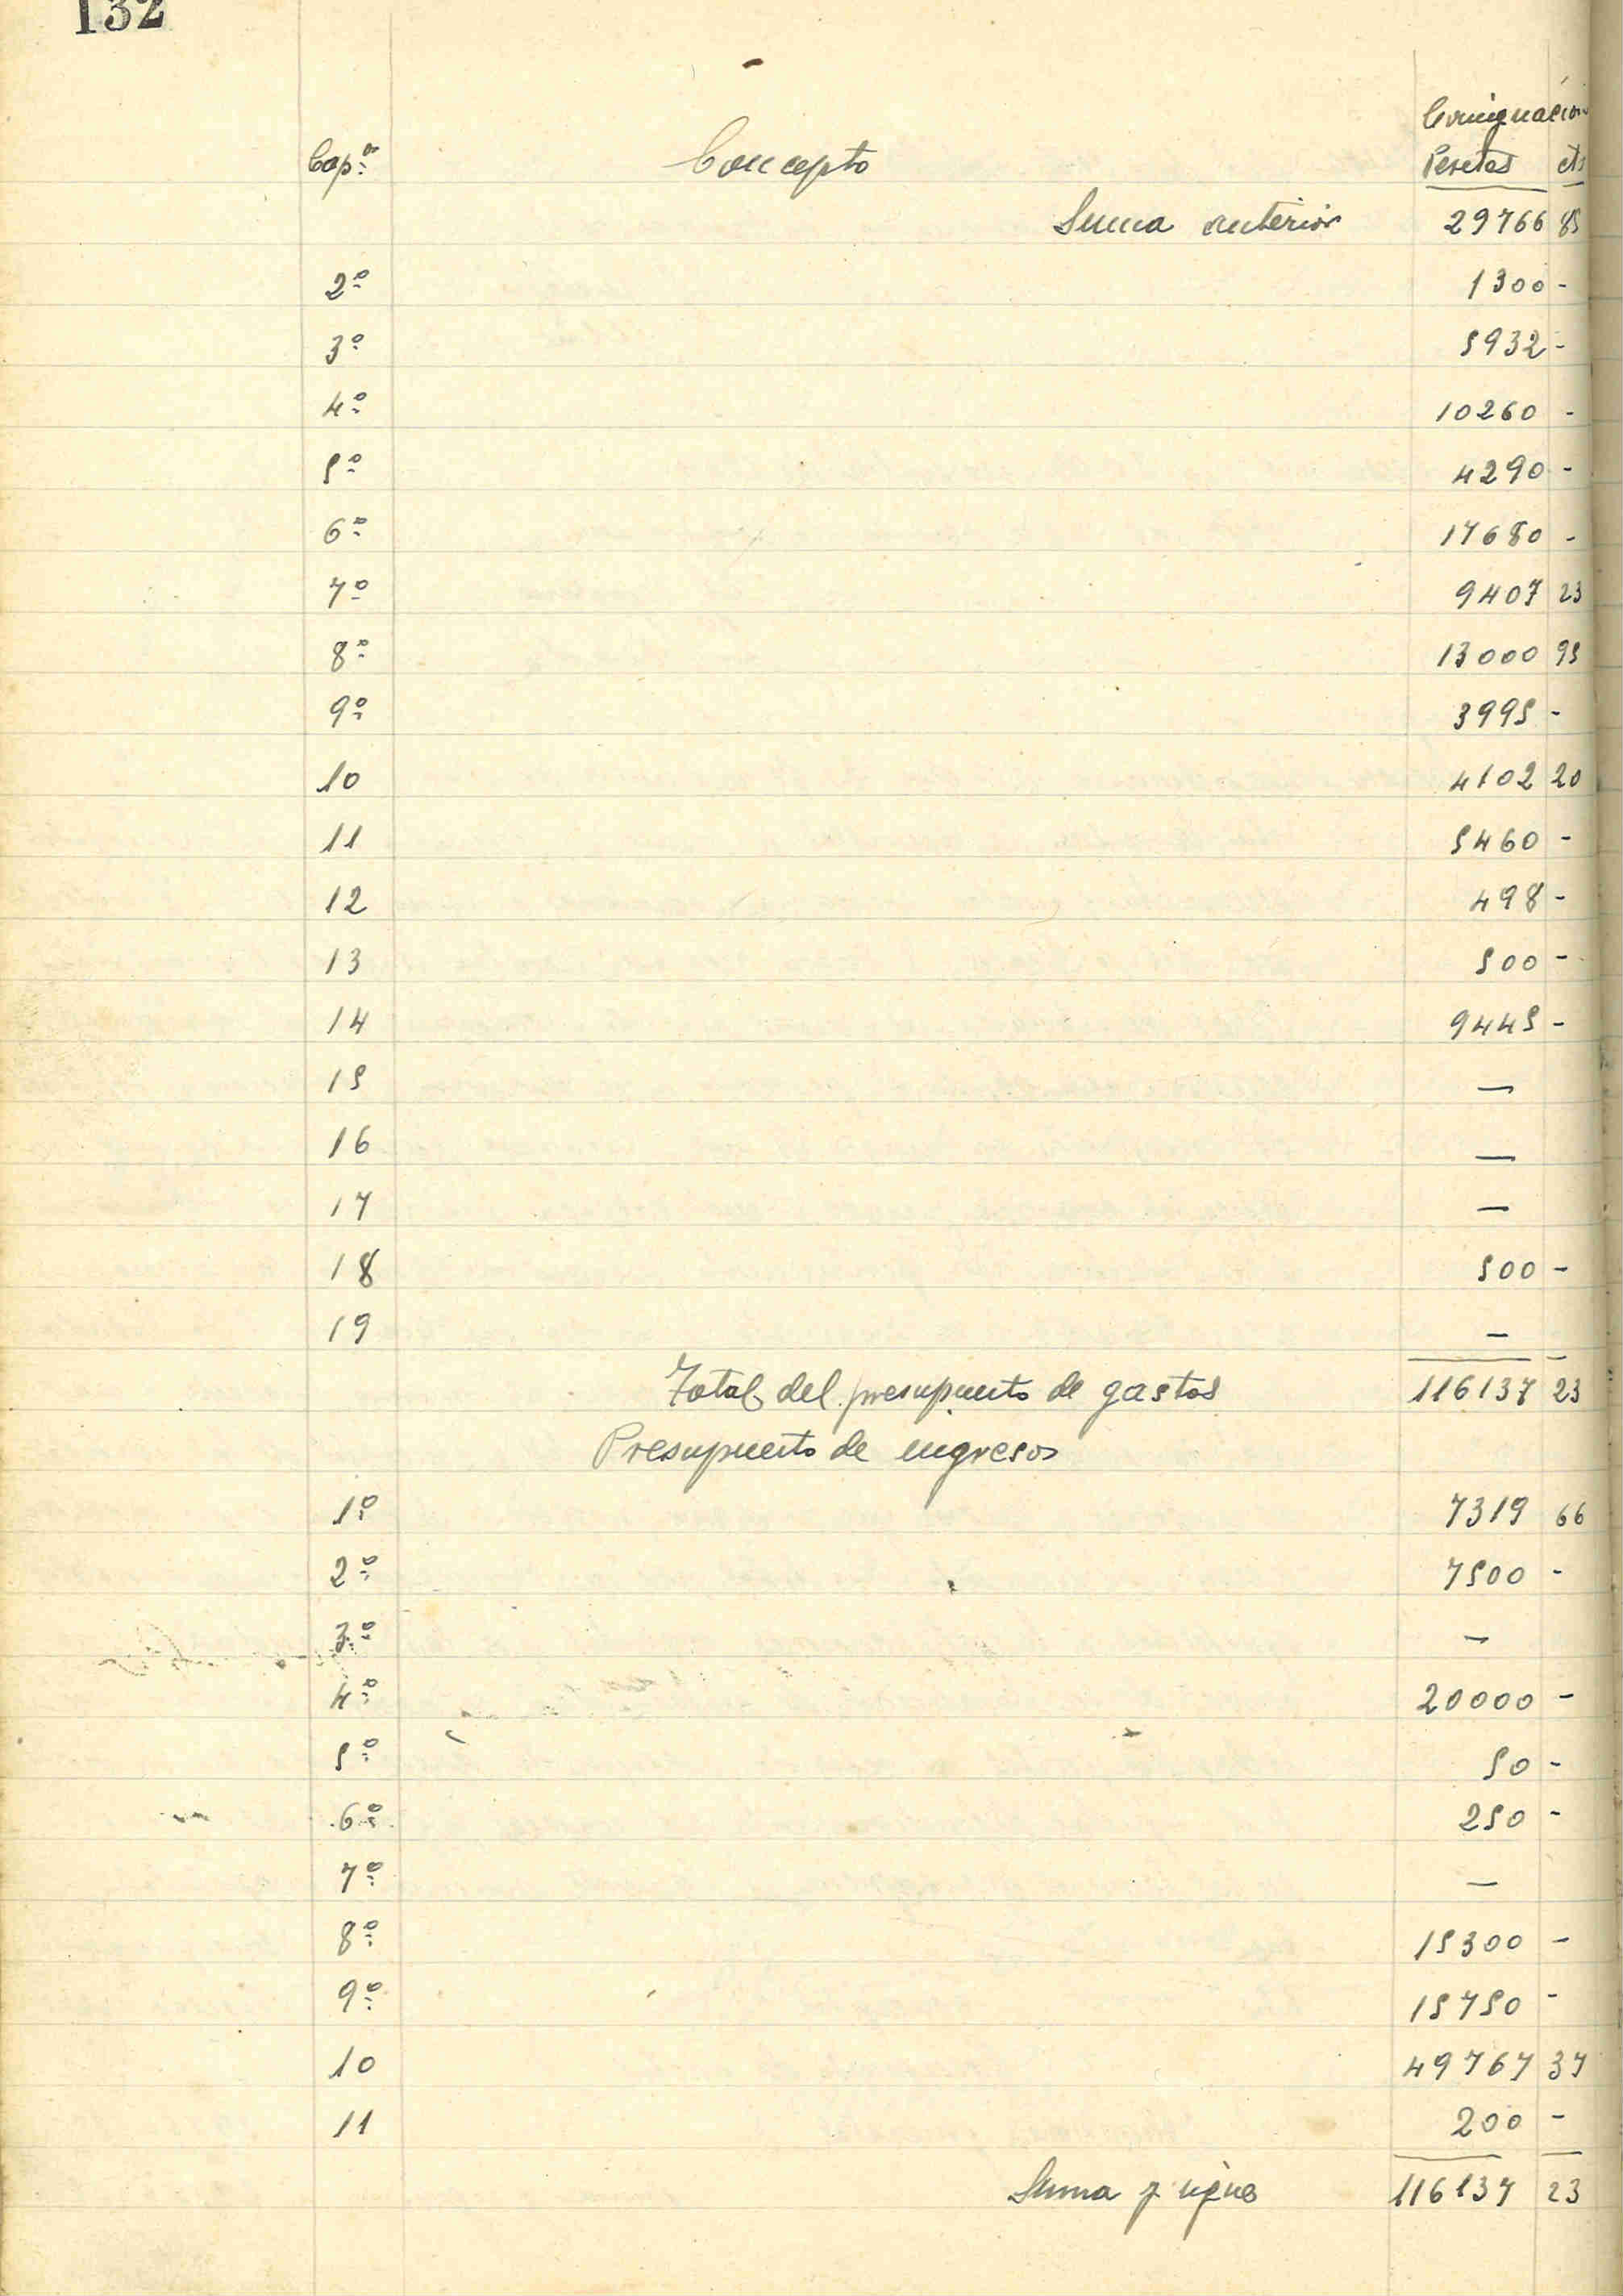 132
Consignación
Cap.º Concepto Pesetas cts
Suma anterior 29766 85
2º 1300 -
3º 5932 -
4º 10260 -
5º 4290 -
6º 17680 -
7º 9407 23
8º 13000 95
9º 3995 -
10 4102 20
11 5460 -
12 498 -
13 500 -
14 9445 -
15 —
16 —
17 —
18 500 -
19 —
Total del presupuesto de gastos 116137 23
Presupuesto de ingresos
1º 7319 66
2º 7500 -
3º —
4º 20000 -
5º 50 -
6º 250 -
7º —
8º 15300 -
9º 15750 -
10 49767 37
11 200 -
Suma y sigue 116137 23